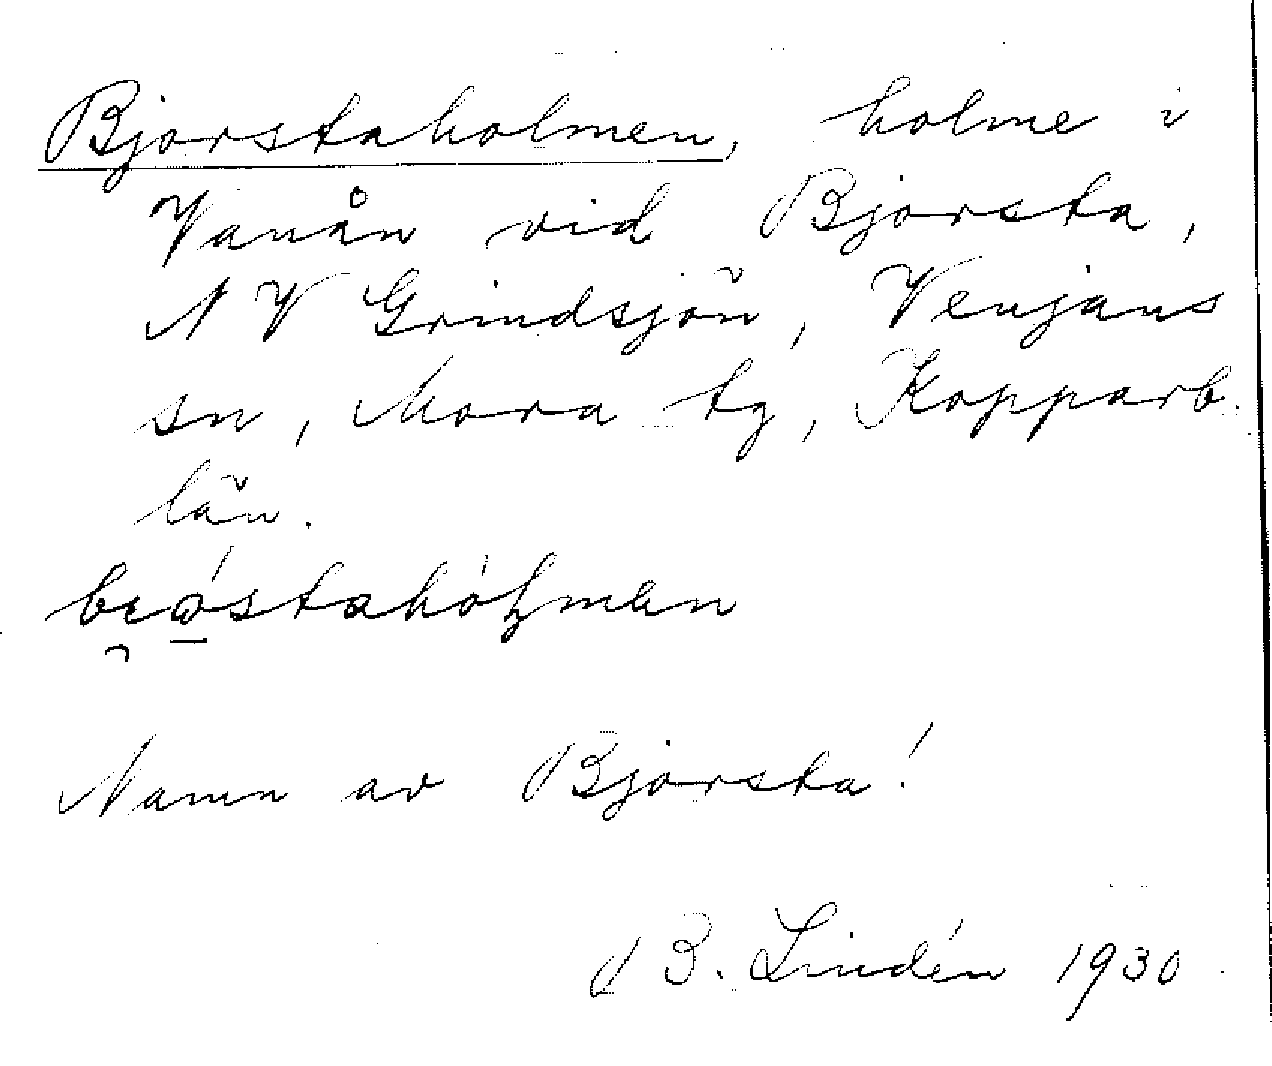 Bjorstaholmen, holme i
Vanån vid Bjorsta,
NV Grindsjön, Venjans
sn, Mora tg, Kopparb.
län.
Namn av Bjorsta!
B. Lindén 1930